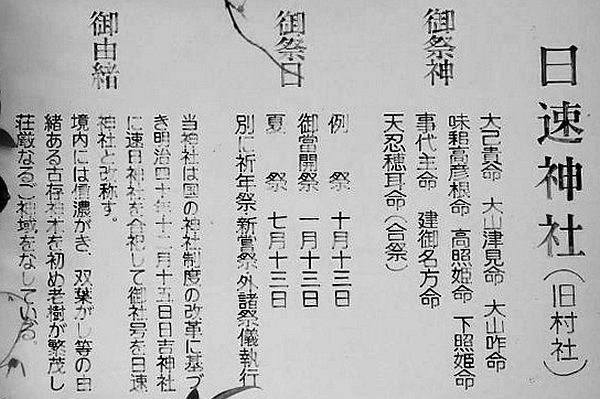 日速神社(旧村社)
御祭神
大己貴命 大山津見命 大山咋命
味耜高彦根命 高照姫命 下照姫命
事代主命 建御名方命
天忍穂耳命(合祭)
御祭日
例祭 十月十三日
御當開祭 一月十三日
夏祭 七月十三日
別に祈年祭新嘗祭外諸祭儀執行
御由緒
当神社は国の神社制度の改革に基づ
き明治四十年十二月十五日日吉神社
に速日神社を合祀して御社号を日速
神社と改称す。
境内には信濃がき、双葉がし等の由
緒ある古存木を初め老樹が繁茂し
荘厳なるご神域をなしている。